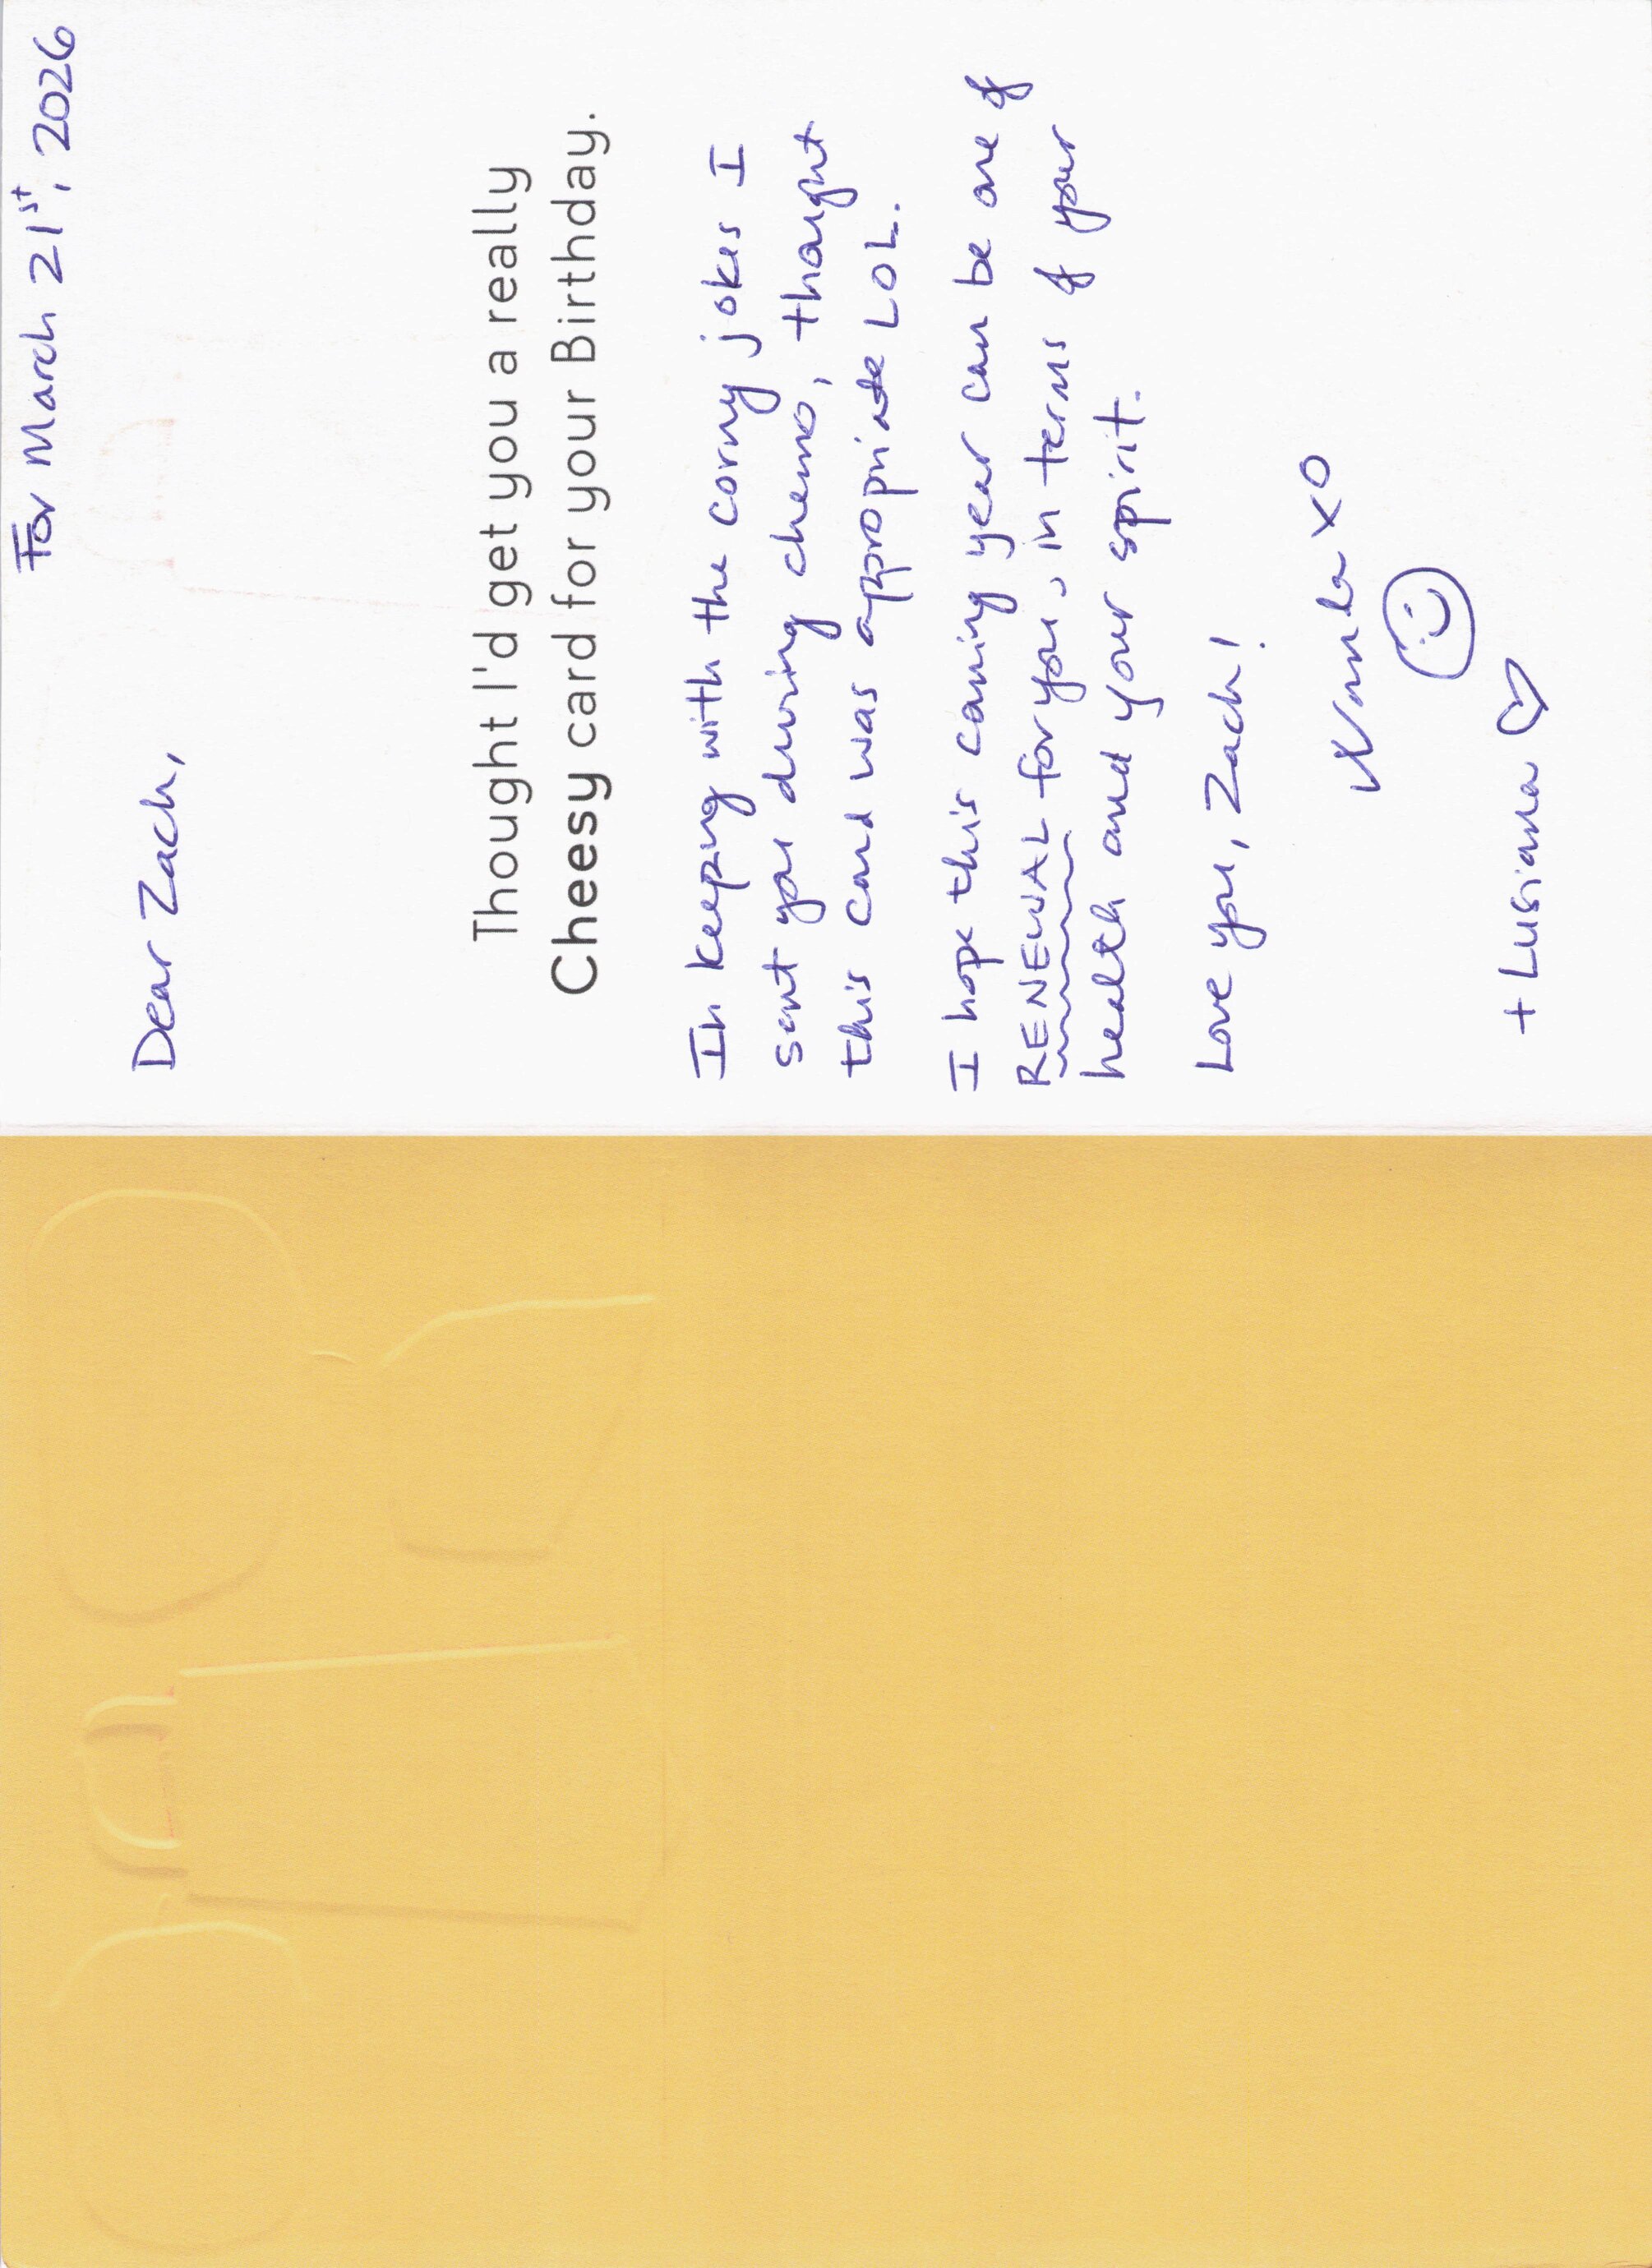 For March 21st, 2026
Dear Zach,
Thought I'd get you a really
Cheesy card for your Birthday.
In keeping with the corny jokes I
sent you during chemo, thought
this card was appropriate LOL.
I hope this coming year can be one of
RENEWAL for you, in terms of your
health and your spirit.
Love you, Zach!
XO
+ Lusiana